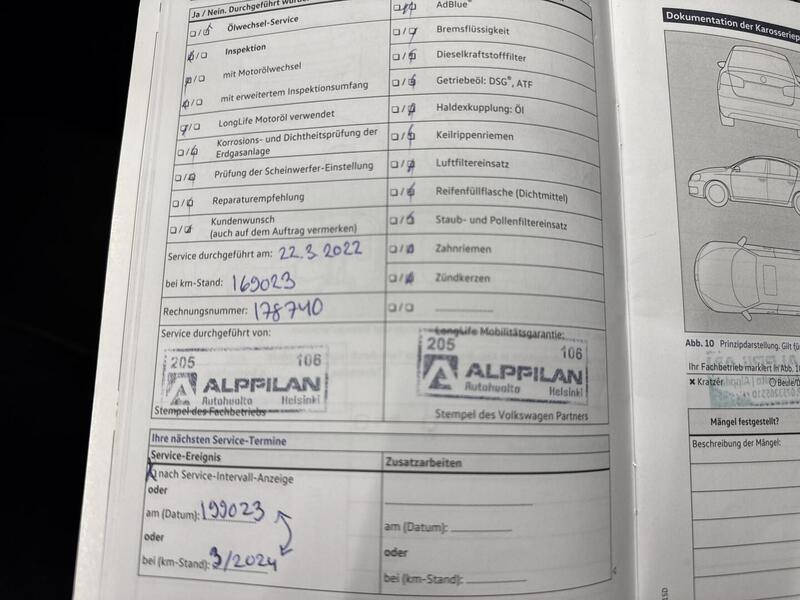 Ja / Nein. Durchgeführt wurde
❏/❏ Ölwechsel-Service
❏/❏ Inspektion
❏/❏ mit Motorölwechsel
❏/❏ mit erweitertem Inspektionsumfang
❏/❏ LongLife Motoröl verwendet
❏/❏ Korrosions- und Dichtheitsprüfung der
Erdgasanlage
❏/❏ Prüfung der Scheinwerfer-Einstellung
❏/❏ Reparaturempfehlung
❏/❏ Kundenwunsch
(auch auf dem Auftrag vermerken)
Service durchgeführt am: 22.3.2022
bei km-Stand: 169023
Rechnungsnummer: 178740
Service durchgeführt von:
205 106
ALPPILAN
Autohuolto Helsinki
Stempel des Fachbetriebs
❏/❏ AdBlue®
❏/❏ Bremsflüssigkeit
❏/❏ Dieselkraftstofffilter
❏/❏ Getriebeöl: DSG®, ATF
❏/❏ Haldexkupplung: Öl
❏/❏ Keilrippenriemen
❏/❏ Luftfiltereinsatz
❏/❏ Reifenfüllflasche (Dichtmittel)
❏/❏ Staub- und Pollenfiltereinsatz
❏/❏ Zahnriemen
❏/❏ Zündkerzen
❏/❏
LongLife Mobilitätsgarantie:
205 106
ALPPILAN
Autohuolto Helsinki
Stempel des Volkswagen Partners
Ihre nächsten Service-Termine
Service-Ereignis
❏ nach Service-Intervall-Anzeige
oder
am (Datum): 199023
oder
bei (km-Stand): 3/2024
Zusatzarbeiten
am (Datum):
oder
bei (km-Stand):
4
Dokumentation der Karosseriep
Abb. 10 Prinzipdarstellung. Gilt fü
Ihr Fachbetrieb markiert in Abb. 10
✖ Kratzer
Mängel festgestellt?
Beschreibung der Mängel: